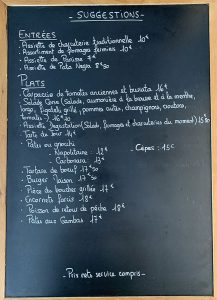 - SUGGESTIONS -
ENTRÉES
- Assiette de charcuterie traditionnelle 10€
- Assortiment de fromages fermiers 10€
- Assiette de Panisse 7€
- Assiette de Pata Negra 8€50
PLATS
- Carpaccio de tomates anciennes et burrata 16€
- Salade (Salade, aumonière à la brousse et à la menthe,
grillé, pommes champignons, croutons,
tomates) 16€50
- Assiette Dégustation (Salade, fromages et charcuteries du moment) 15€50
- Tarte du jour 11€
- Pâtes ou gnocchi
- Napolitaine : 12€
- Carbonara : 13€
- Cèpes : 15€
- Tartare de boeuf 17€50
- Burger Maison 17€50
- Pièce du boucher grillée 17€
- Encornets farcis 18€
- Poisson de retour de pêche 18€
- Pâtes aux Gambas 17€
- Prix nets service compris -